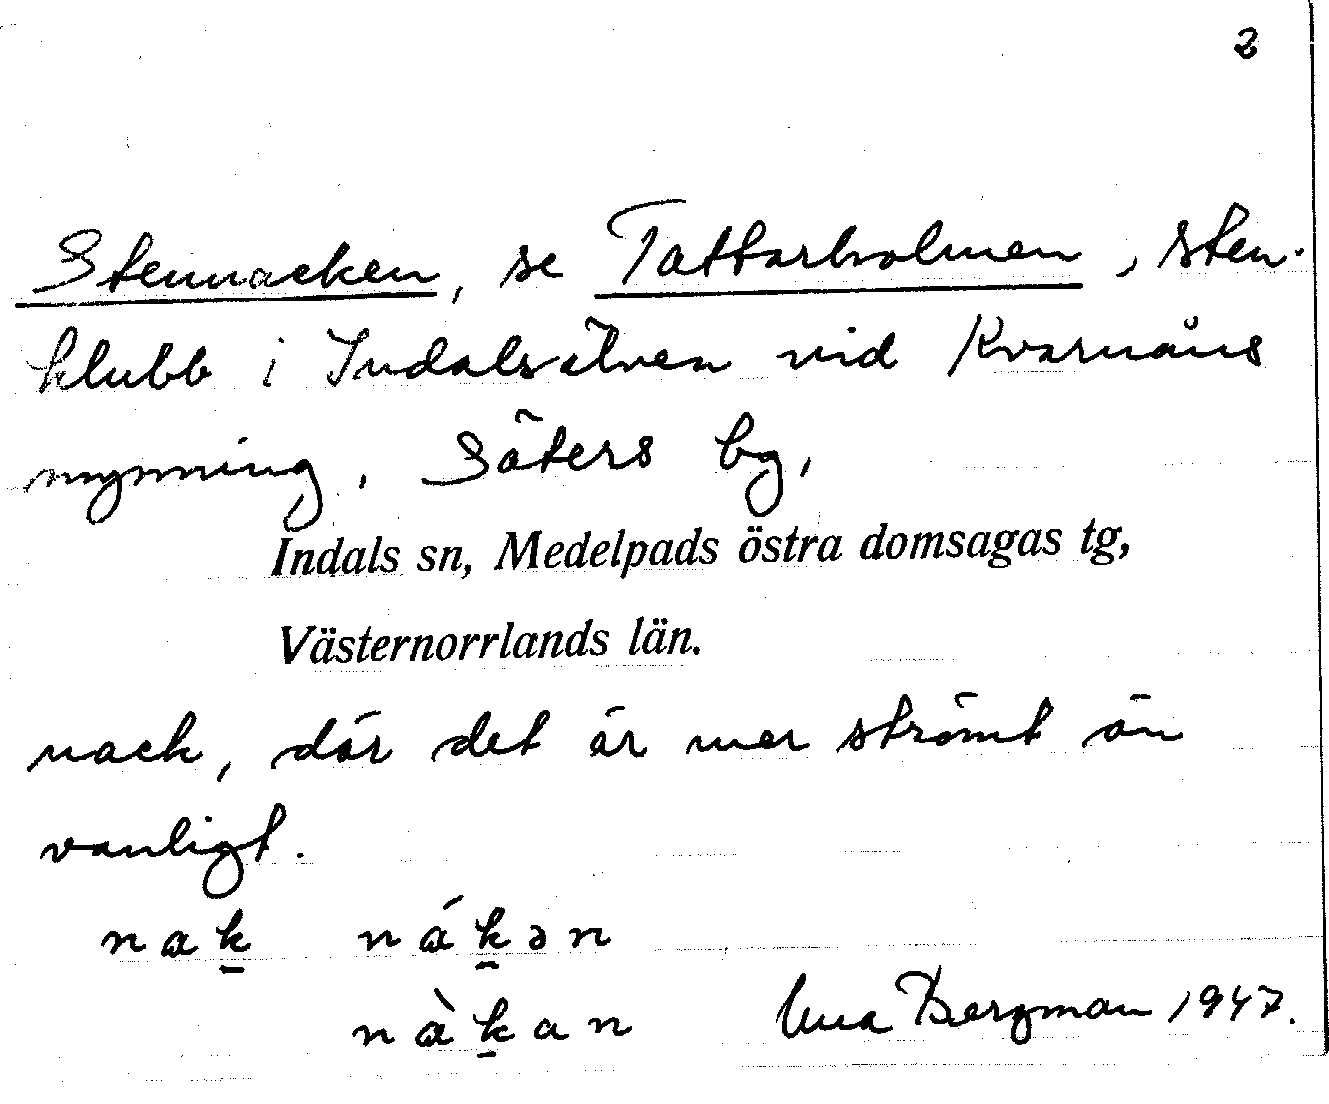 2
Stennacken, se Tattarholmen, sten-
klubb i Indalsälven vid Kvarnåns
mynning. Säters by,
Indals sn, Medelpads östra domsagas tg,
Västernorrlands län.
nack, där det är mer strömt än
vanligt.
nak̲ nák̲ən
nàk̲an Bergman 1947.